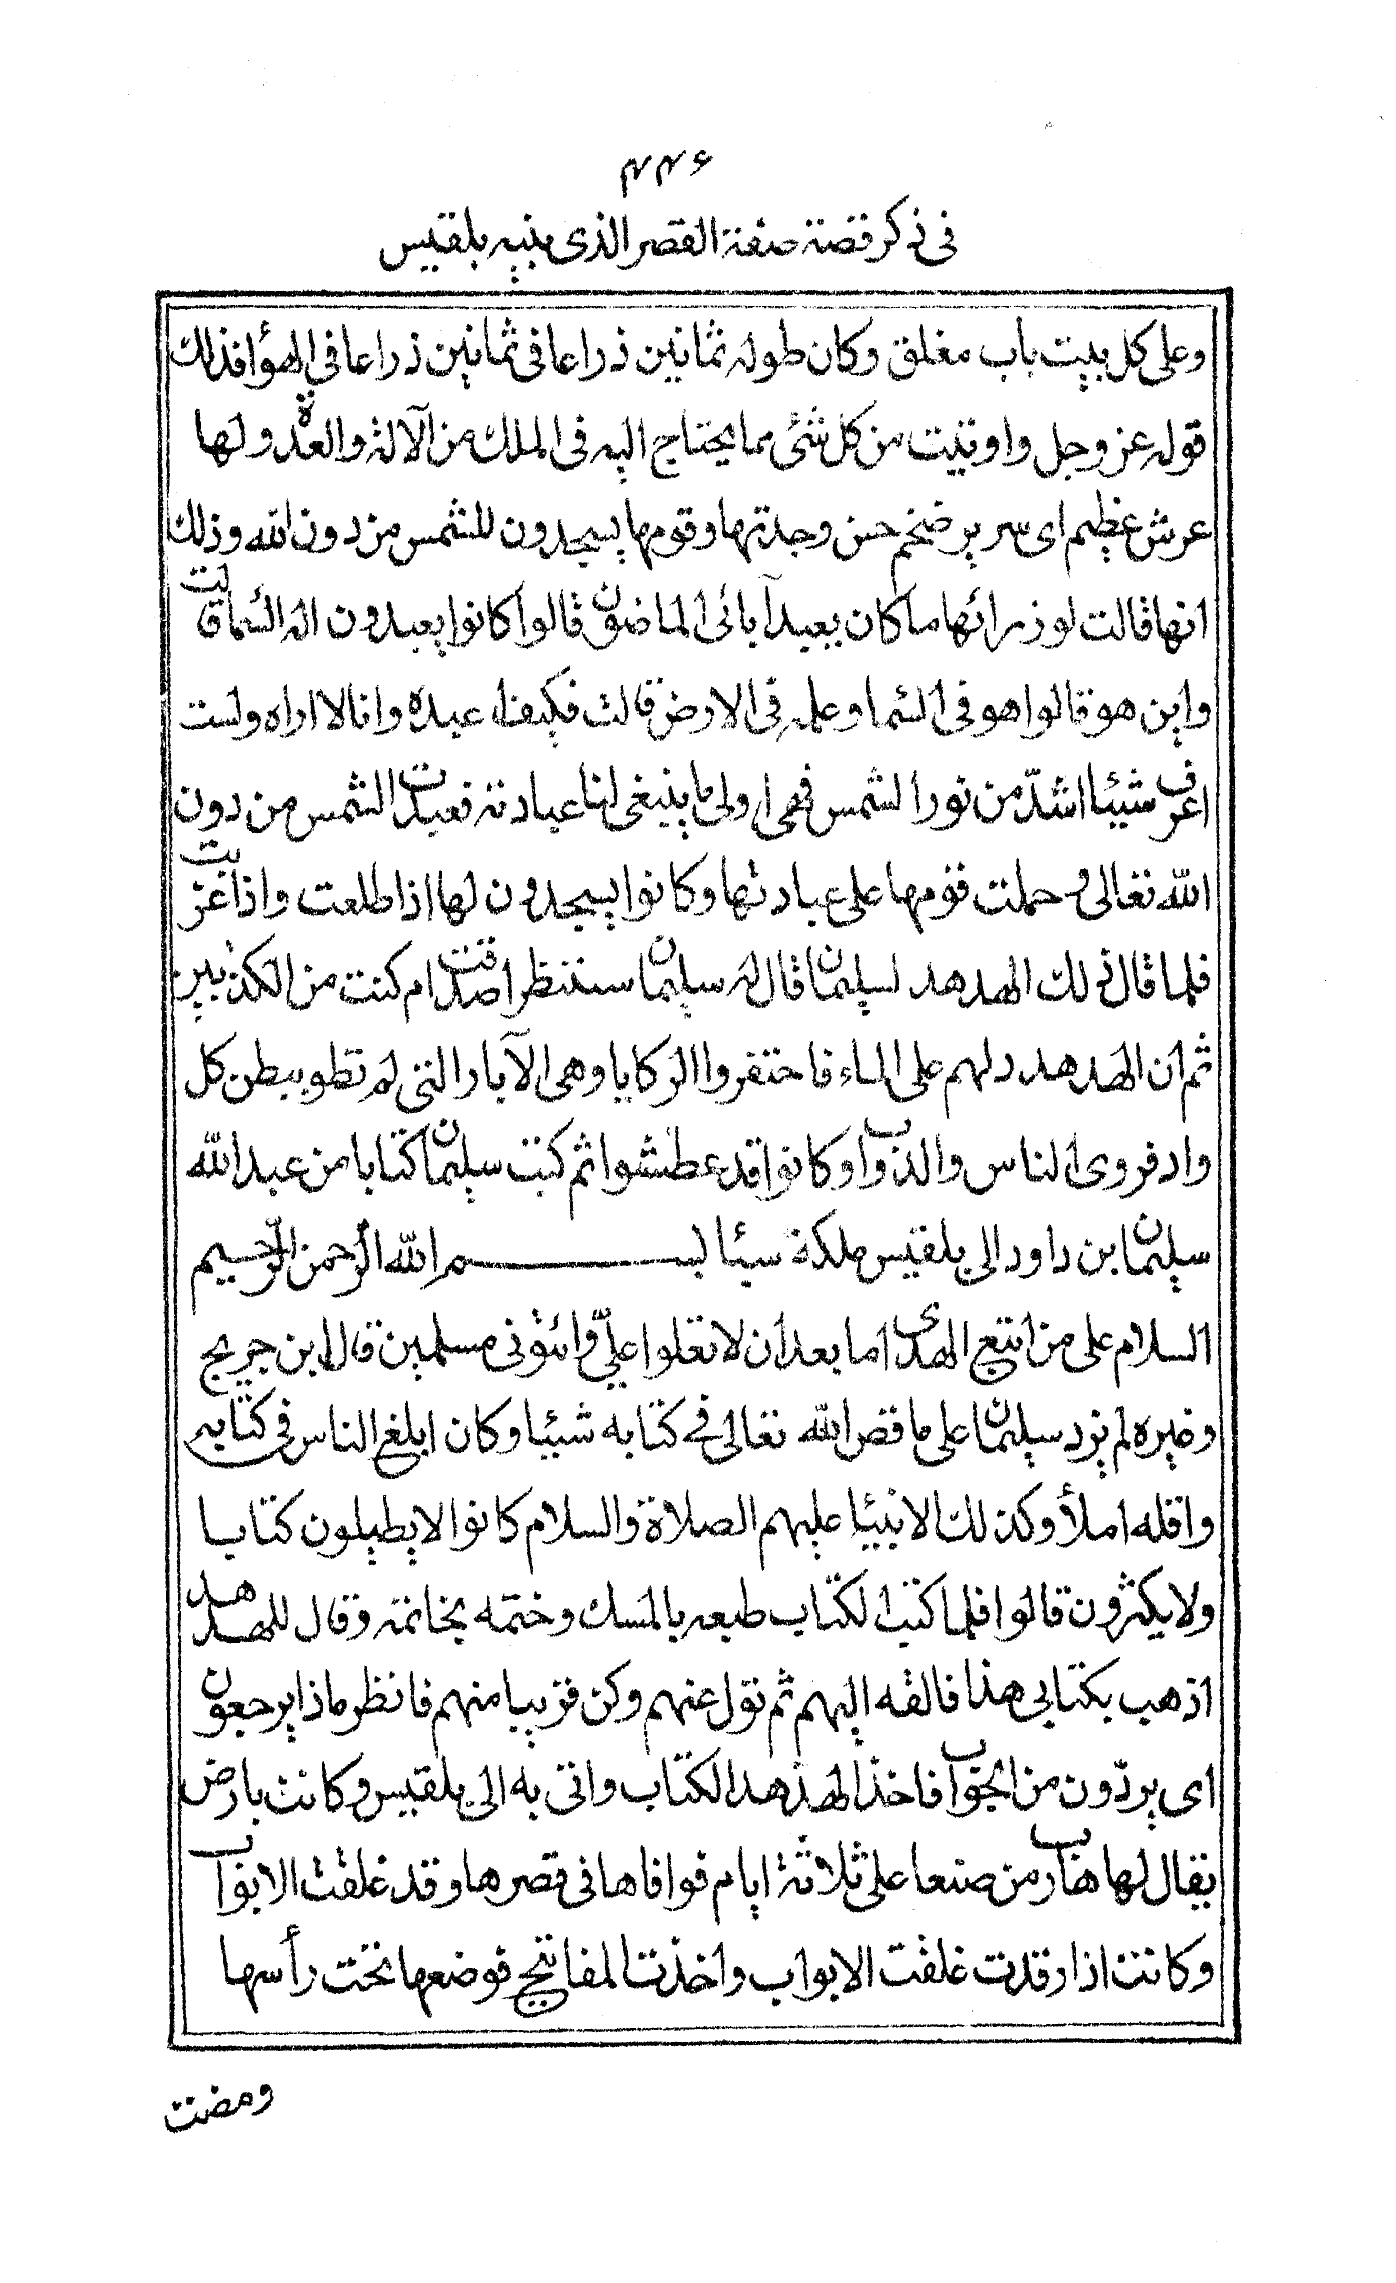 ٤٣٣
في ذكر قصة صفة القصر الذى بنيه بلقيس
وعلى كل بيت باب مغلق وكان طوله ثمانين ذراعا فى ثمانين ذراعا في الهوٴا فذلك
قوله عز وجل واوتيت من كل شئ مما يحتاج اليه فى الملك من الآلة والعدة ولها
عرش عظيم اى سرير ضخم حسن وجدتها وقومها يسجدون للشمس من دون الله وذلك
انها قالت لوزرائها ما كان يعبد آبائى الماضون قالوا كانوا يعبدون اله السما قالت
واين هو قالوا هو في السما وعلمه فى الارض قالت فكيف اعبده وانا لا اراه ولست
اعرف شيئا اشدّ من نور الشمس فهى اولى ما ينبغى لنا عبادته فعبدت الشمس من دون
الله تعالى وحملت قومها على عبادتها وكانوا يسجدون لها اذا طلعت واذا غربت
فلما قال ذلك الهدهد لسليمان قال له سليمان سننظر اصدقت ام كنت من الكذبين
ثم ان الهدهد دلهم على الماء فاحتفروا الركايا وهى الآبار التى لم تطو ببطن كل
واد فروى الناس والدواب وكانوا قد عطشوا ثم كتب سليمان كتابا من عبد الله
سليمان ابن داود الى بلقيس ملكة سبٴا بســــم الله الرحمن الرّحيم
السلام على من اتبع الهدى اما بعد ان لا تعلوا عليّ وائتونى مسلمين قال ابن جريج
وغيره لم يزد سليمان على ما قص الله تعالى في كتابه شيئا وكان ابلغ الناس فى كتابه
واقله املأ وكذلك الانبيٴا عليهم الصلاة والسلام كانوا لا يطيلون كتابا
ولا يكثرون قالوا فلما كتب الكتاب طبعه بالمسك وختمه بخاتمه وقال للهدهد
اذهب بكتابى هذا فالقه اليهم ثم تول عنهم وكن قريبا منهم فانظر ماذا يرجعون
اى يردّون من الجواب فاخذ الهدهد الكتاب واتى به الى بلقيس وكانت بارض
يقال لها هارب من صنعا على ثلاثة ايام فوافاها فى قصرها وقد غلقت الابواب
وكانت اذا رقدت غلقت الابواب واخذت المفاتيح فوضعها تحت رأسها
ومضت